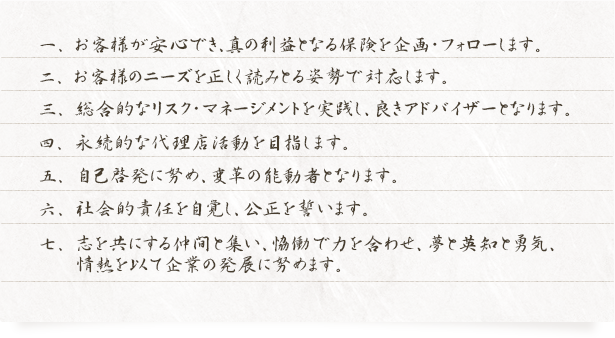 一、お客様が安心でき、真の利益となる保険を企画・フォローします。
二、お客様のニーズを正しく読みとる姿勢で対応します。
三、総合的なリスク・マネージメントを実践し、良きアドバイザーとなります。
四、永続的な代理店活動を目指します。
五、自己啓発に努め、変革の能動者となります。
六、社会的責任を自覚し、公正を誓います。
七、志を共にする仲間と集い、恊働で力を合わせ、夢と英知と勇気、
情熱を以て企業の発展に努めます。